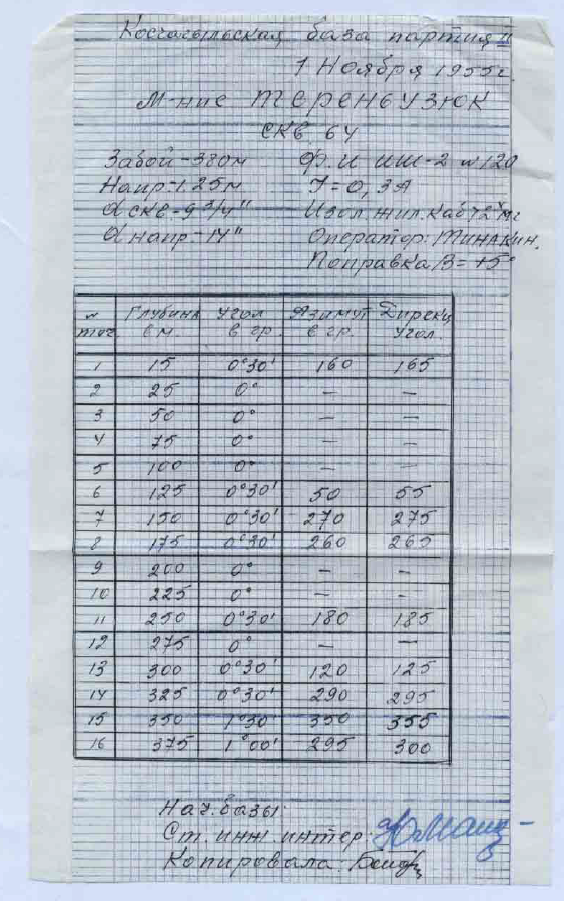 Косчагыльская база партия II
1 Ноября 1955г.
М-ние Теренбузюк
СКВ 64
Забой-380м Ф.И ИШ-2 №120
Напр-1.25м J=0,3А
d скв-9 3/4" Изол.жил.каб 72 мг
d напр-14" Оператор: Тинакин.
Поправка В=+5°
№ точ. Глубина в м. Угол в гр. Азимут в гр. Дирекц Угол.
1 15 0°30' 160 165
2 25 0° — —
3 50 0° — —
4 75 0° — —
5 100 0° — —
6 125 0°30' 50 55
7 150 0°30' 270 275
8 175 0°30' 260 265
9 200 0° — —
10 225 0° — —
11 250 0°30' 180 185
12 275 0° — —
13 300 0°30' 120 125
14 325 0°30' 290 295
15 350 1°30' 350 355
16 375 1°00' 295 300
Нач.базы:
Ст. инж интер:
Копировала: